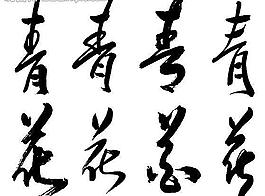 青 青 青 青
花 花 花 花